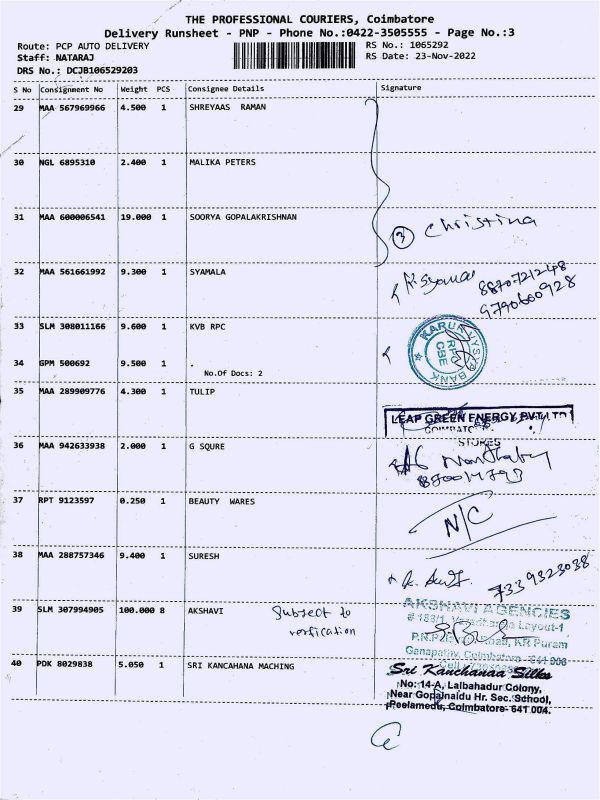 THE PROFESSIONAL COURIERS, Coimbatore
Delivery Runsheet - PNP - Phone No.:0422-3505555 - Page No.:3
Route: PCP AUTO DELIVERY
RS No.: 1065292
Staff: NATARAJ
RS Date: 23-Nov-2022
DRS No.: DCJB106529203
S No Consignment No Weight PCS Consignee Details Signature
29 MAA 567969966 4.500 1 SHREYAAS RAMAN
30 NGL 6895310 2.400 1 MALIKA PETERS
31 MAA 600006541 19.000 1 SOORYA GOPALAKRISHNAN
3 Christina
32 MAA 561661992 9.300 1 SYAMALA
8870721248
9790600928
33 SLM 308011166 9.600 1 KVB RPC
KARUR VYSYA BANK
RPC
CBE
34 GPM 500692 9.500 1 .
No.Of Docs: 2
35 MAA 289909776 4.300 1 TULIP
LEAP GREEN ENERGY PVT LTD
STORES
36 MAA 942633938 2.000 1 G SQURE
37 RPT 9123597 0.250 1 BEAUTY WARES
N/C
38 MAA 288757346 9.400 1 SURESH
7339323038
39 SLM 307994905 100.000 8 AKSHAVI
Subject to
verification
AKSHAVI AGENCIES
40 PDK 8029838 5.050 1 SRI KANCAHANA MACHING
Sri Kanchanaa Silks
No: 14-A, Lalbahadur Colony,
Near Gopalnaidu Hr. Sec. School,
Peelamedu, Coimbatore- 641 004.